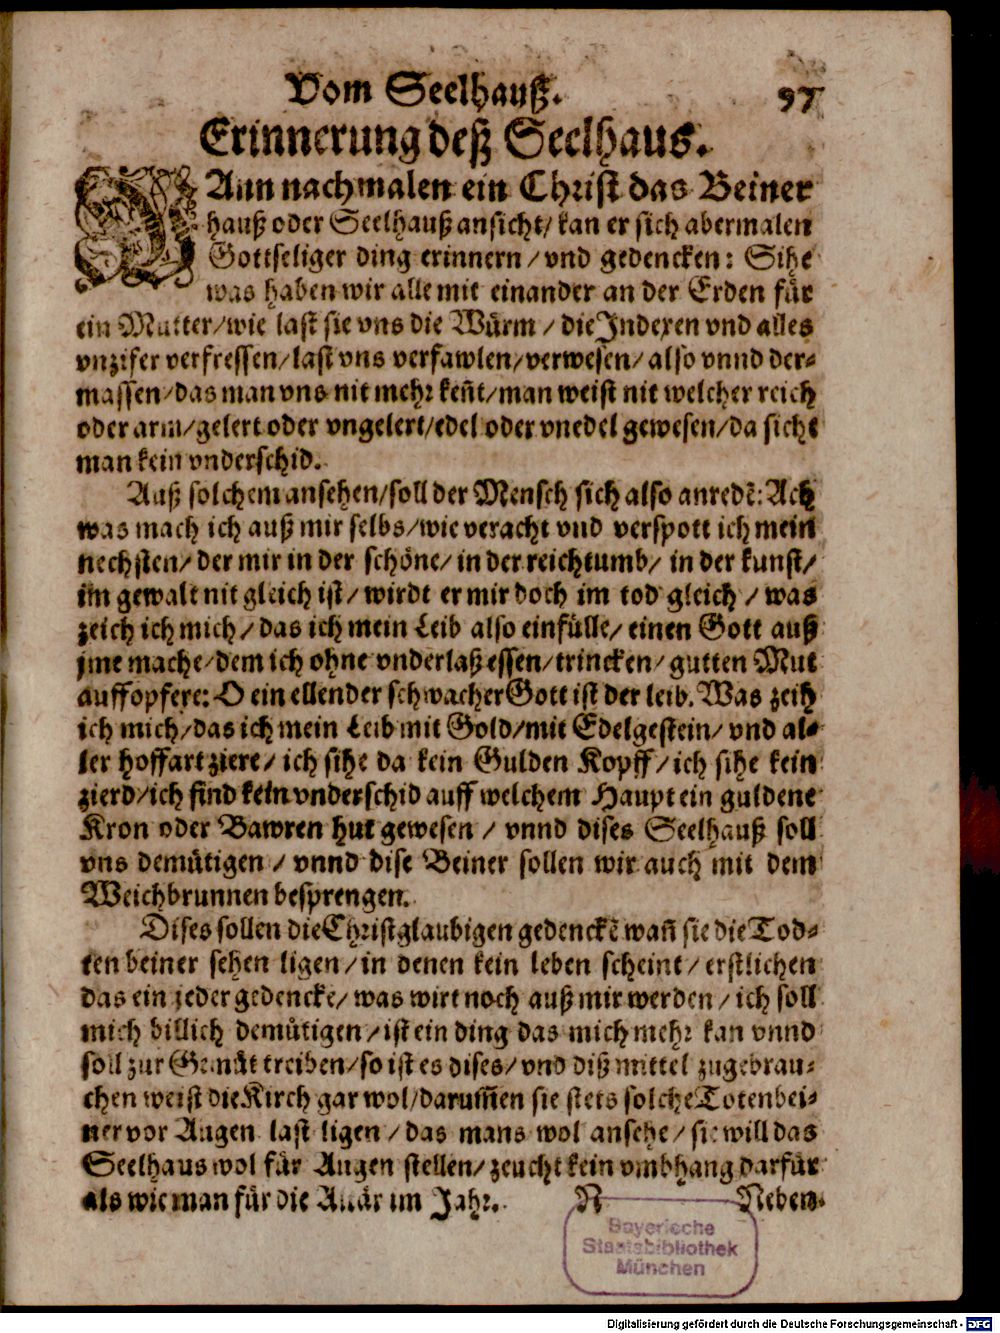 Vom Seelhauß. 97
Erinnerung deß Seelhaus.
WAnn nachmalen ein Christ das Beiner
hauß oder Seelhauß ansicht/ kan er sich abermalen
Gottseliger ding erinnern/ vnd gedencken: Sihe
was haben wir alle mit einander an der Erden für
ein Mutter/ wie last sie vns die Würm/ die Indexen vnd alles
vnzifer verfressen/ last vns verfawlen/ verwesen/ also vnnd der-
massen/ das man vns nit mehr keñt/ man weist nit welcher reich
oder arm/ gelert oder vngelert/ edel oder vnedel gewesen/ da sicht
man kein vnderschid.
Auß solchem ansehen/ soll der Mensch sich also anredẽ: Ach
was mach ich auß mir selbs/ wie veracht vnd verspott ich mein
nechsten/ der mir in der schöne/ in der reichtumb/ in der kunst/
im gewalt nit gleich ist/ wirdt er mir doch im tod gleich/ was
zeich ich mich/ das ich mein Leib also einfülle/ einen Gott auß
jme mache/ dem ich ohne vnderlaß essen/ trincken/ gutten Mut
auffopfere: O ein ellender schwacher Gott ist der leib. Was zeih
ich mich/ das ich mein Leib mit Gold/ mit Edelgestein/ vnd al-
ler hoffart ziere/ ich sihe da kein Gulden Kopff/ ich sihe kein
zierd/ ich find kein vnderschid auff welchem Haupt ein guldene
Kron oder Bawren hut gewesen/ vnnd dises Seelhauß soll
vns demütigen/ vnnd dise Beiner sollen wir auch mit dem
Weichbrunnen besprengen.
Dises sollen die Christglaubigen gedenckẽ wañ sie die Tod-
ten beiner sehen ligen/ in denen kein leben scheint/ erstlichen
das ein jeder gedencke/ was wirt noch auß mir werden/ ich soll
mich billich demütigen/ ist ein ding das mich mehr kan vnnd
soll zur Demüt treiben/ so ist es dises/ vnd diß mittel zugebrau-
chen weist die Kirch gar wol/ darum̃en sie stets solche Totenbei-
ner vor Augen last ligen/ das mans wol ansehe/ sie will das
Seelhaus wol für Augen stellen/ zeucht kein vmbhang darfür
als wie man für die Altär im Jahr. N Neben-
Bayerische
Staatsbibliothek
München
Digitalisierung gefördert durch die Deutsche Forschungsgemeinschaft - DFG